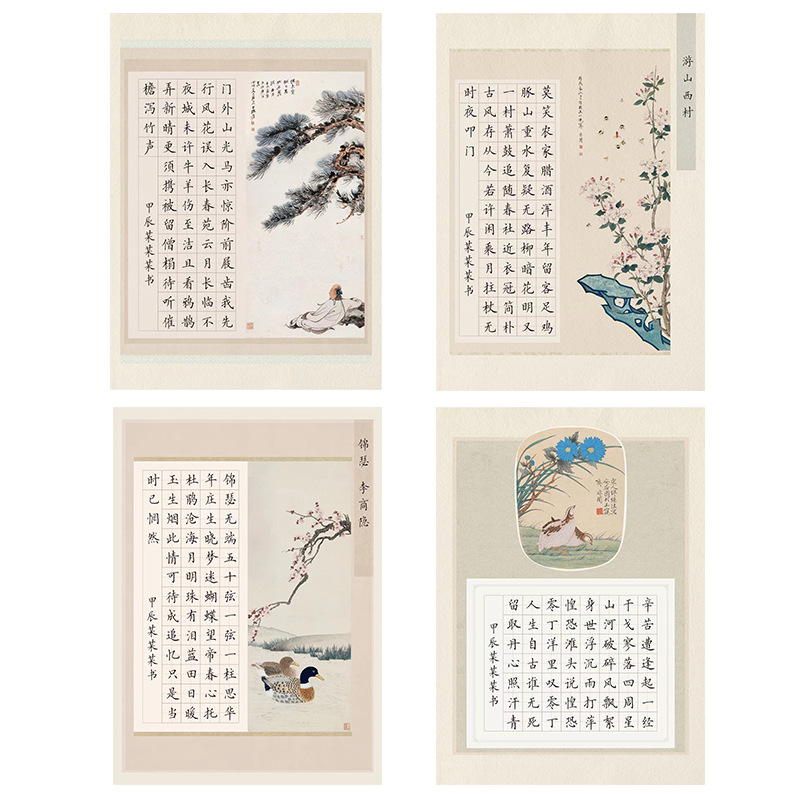 门外山光马亦惊阶前屐齿我先
行风花误入长春苑云月长临不
夜城未许牛羊伤至洁且看鸦鹊
弄新晴更须携被留僧榻待听催
檐泻竹声
甲辰某某某书
游山西村
莫笑农家腊酒浑丰年留客足鸡
豚山重水复疑无路柳暗花明又
一村萧鼓追随春社近衣冠简朴
古风存从今若许闲乘月拄杖无
时夜叩门
甲辰某某某书
锦瑟 李商隐
锦瑟无端五十弦一弦一柱思华
年庄生晓梦迷蝴蝶望帝春心托
杜鹃沧海月明珠有泪蓝田日暖
玉生烟此情可待成追忆只是当
时已惘然
甲辰某某某书
辛苦遭逢起一经
干戈寥落四周星
山河破碎风飘絮
身世浮沉雨打萍
惶恐滩头说惶恐
零丁洋里叹零丁
人生自古谁无死
留取丹心照汗青
甲辰某某某书